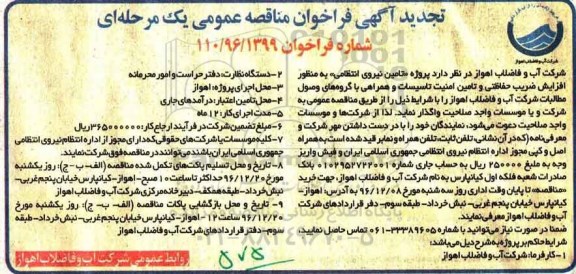 تجدید آگهی فراخوان مناقصه عمومی یک مرحله‌ای
شماره فراخوان ۱۱۰/۹۶/۱۳۹۹
شرکت آب و فاضلاب اهواز
شرکت آب و فاضلاب اهواز در نظر دارد پروژه «تامین نیروی انتظامی» به منظور
افزایش ضریب حفاظتی و تامین امنیت تاسیسات و همراهی با گروه‌های وصول
مطالبات شرکت آب و فاضلاب اهواز را با شرایط ذیل را از طریق مناقصه عمومی به
شرکت و یا موسسات واجد صلاحیت واگذار نماید. لذا از شرکت‌ها و موسسات
واجد صلاحیت دعوت می‌شود، نمایندگان خود را با در دست داشتن مهر شرکت و
معرفی‌نامه (که در آن نشانی، تلفن ثابت، تلفن همراه و نمابر قید شده است) به همراه
اصل و کپی مجوز اداره انتظام نیروی انتظامی جمهوری اسلامی ایران و فیش واریز
وجه به مبلغ ۲۵۰۰۰۰ ریال به حساب جاری شماره
صادرات شعبه فلکه اول کیانپارس به نام شرکت آب و فاضلاب اهواز، جهت خرید
«مناقصه» تا پایان وقت اداری روز سه شنبه مورخ ۹۶/۱۲/۰۸ به آدرس: اهواز-
کیانپارس خیابان پنجم غربی- نبش خرداد- طبقه سوم- دفر قراردادهای شرکت
آب و فاضلاب اهواز معرفی نمایند.
ضمنا در صورت نیاز می‌توانید با شماره ۳۳۳۸۹۶۰۵-۰۶۱ تماس حاصل نمایید.
شرایط حاکم بر پروژه به شرح ذیل می‌باشد:
۱- کارفرما: شرکت آب و فاضلاب اهواز
۲- دستگاه نظارت: دفتر حراست و امور محرمانه
۳- محل اجرای پروژه: اهواز
۴- محل تامین اعتبار: درآمدهای جاری
۵- مدت اجرای کار: ۱۲ ماه
۶- مبلغ تضمین شرکت در فرآیند ارجاع کار: ۳۶۵۰۰۰۰۰۰ ریال
۷- کلیه موسسات یا شرکت‌های حقوقی که دارای مجوز از اداره انتظام نیروی انتظامی
جمهوری اسلامی ایران باشند، می‌توانند در مناقصه فوق شرکت نمایند.
۸- تاریخ و محل تسلیم پاکت‌های تکمیل شده مناقصه (الف- ب- ج): روز یکشنبه
مورخ ۹۶/۱۲/۲۰ حداکثر تا ساعت ۱۰ صبح- اهواز- کیانپارس خیابان پنجم غربی-
نبش خرداد- طبقه همکف- دبیرخانه مرکزی شرکت آب و فاضلاب اهواز
۹- تاریخ و محل بازگشایی پاکات مناقصه (الف- ب- ج): روز یکشنبه مورخ
۹۶/۱۲/۲۰ ساعت ۱۲- اهواز- کیانپارس خیابان پنجم غربی- نبش خرداد- طبقه
سوم- دفتر قراردادهای شرکت آب و فاضلاب اهواز
روابط عمومی شرکت آب و فاضلاب اهواز
۵۷۵